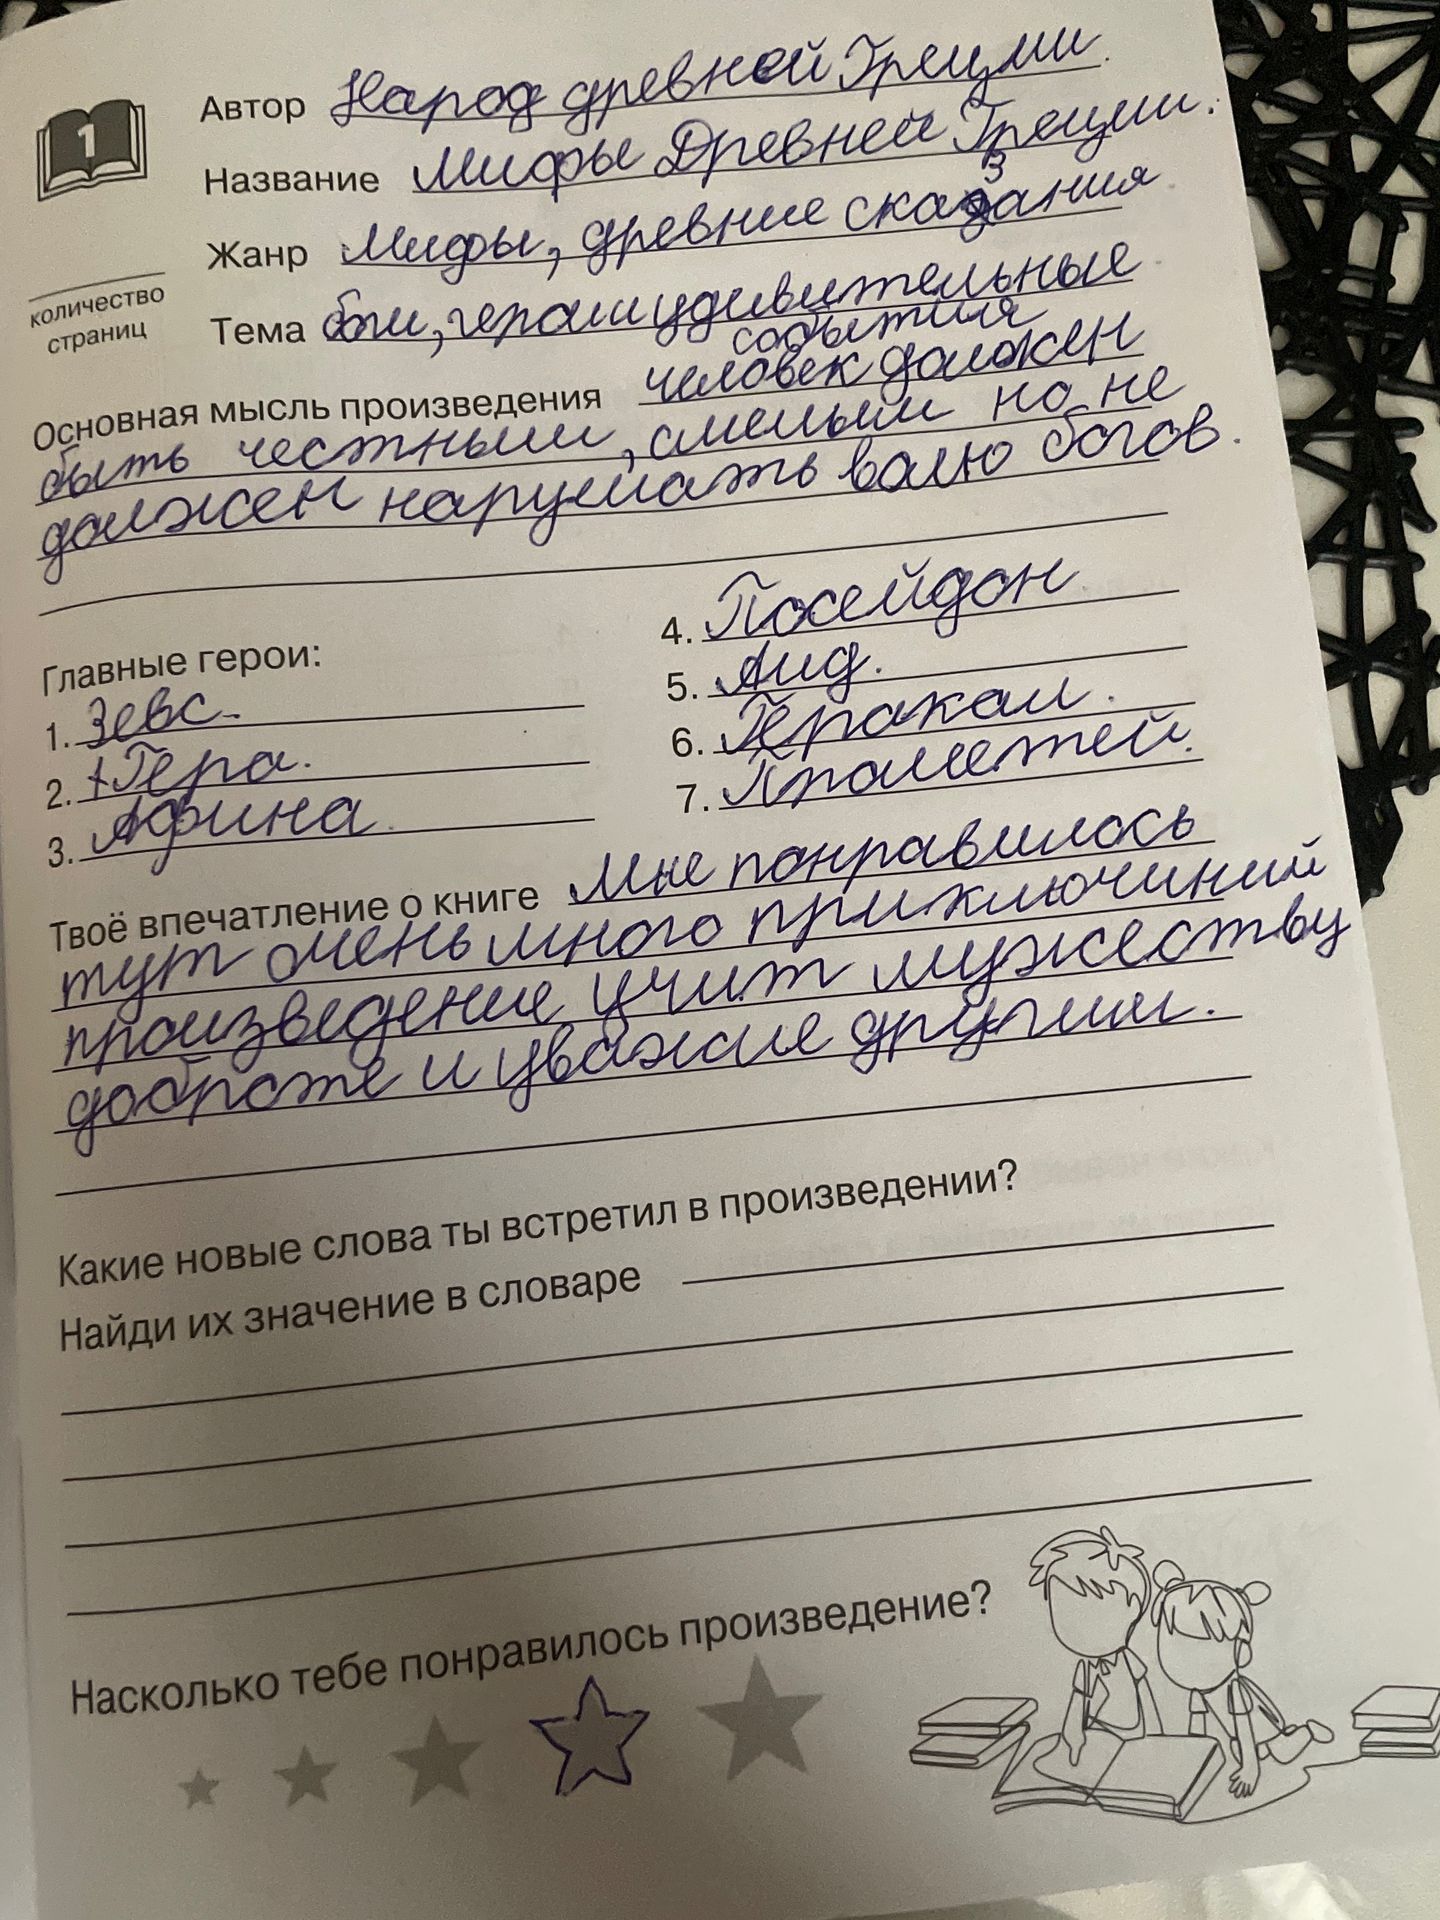 1
Автор Народ древней Греции.
Название Мифы Древней Греции.
Жанр Мифы, древние сказания
количество
страниц
Тема боги, герои и удивительные
события
Основная мысль произведения человек должен
быть честным, смелым но не
должен нарушать волю богов.
Главные герои:
1. Зевс.
2. Гера.
3. Афина.
4. Посейдон
5. Аид.
6. Геракал.
7. Прометей.
Твоё впечатление о книге Мне понравилось
тут очень много приключиний
произведение учит мужеству
доброте и уважие другими.
Какие новые слова ты встретил в произведении?
Найди их значение в словаре
Насколько тебе понравилось произведение?